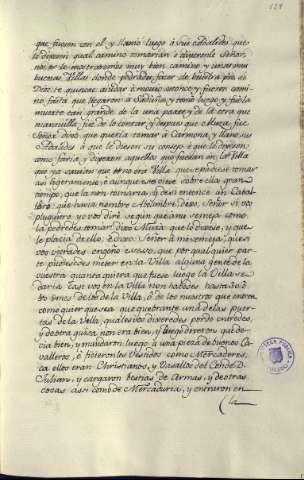 que fuesen con el y llamó luego à sus adalides que
le digesen qual camino tomarian è digeronle Señor
nos te mostraremos muy bien camino y unas muy
buenas Villas donde podredes facer de vuestra pro si
Dios te quisiere aiudar è movio entonces y fueron cami-
no fasta que llegaron a Sidueña, y tomó luego, y fizo la
muerte tan grande de la una parte y de la otra que
maravilla fue de lo contar y despues que esto fizo
Señor dixo que queria tomar à Carmona, y llamó sus
Adalides à que le diesen su consejo è que le digesen
como faria, y digeron aquellos que fueran en la Villa
que no sauian que otra era Villa que se pudiese tomar
tan ligeramente è aunque estoviese sobre ella gran
tiempo, que la non tomaria, è desi entonces un Caval-
lero que havia nombre dixo, Señor si vos
pluguiere yo vos dire segun que à mi semeja como
la podredes tomar dixo Muza que lo diria, y que
le placia de ello. Entonces Señor à mi semeja, que si
vos pudiesedes engaño nasca, que por qualquier par-
te pudiesedes meter en la Villa alguna gente de la
vuestra quanta quiera que fuese luego la Villa se
daria casi vos en la Villa non habedes hasta
omes de los de la Villa, è de los nuestros que entren
como quier que sea que quebranten una de las puer-
tas de la Villa, qual asi do dixeredes por do entredes,
y de otra guisa non era bien, y luego dixeron que de-
via bien, y mandaron luego à una pieza de buenos Ca-
valleros, è ficieron los vestidos como Mercaderes
ca ellos eran Christianos, y Vasallos del Conde D.
Julian, y cargaron bestias de Armas, y de otras
cosas asi como de Mercaduria, y entraron en
la